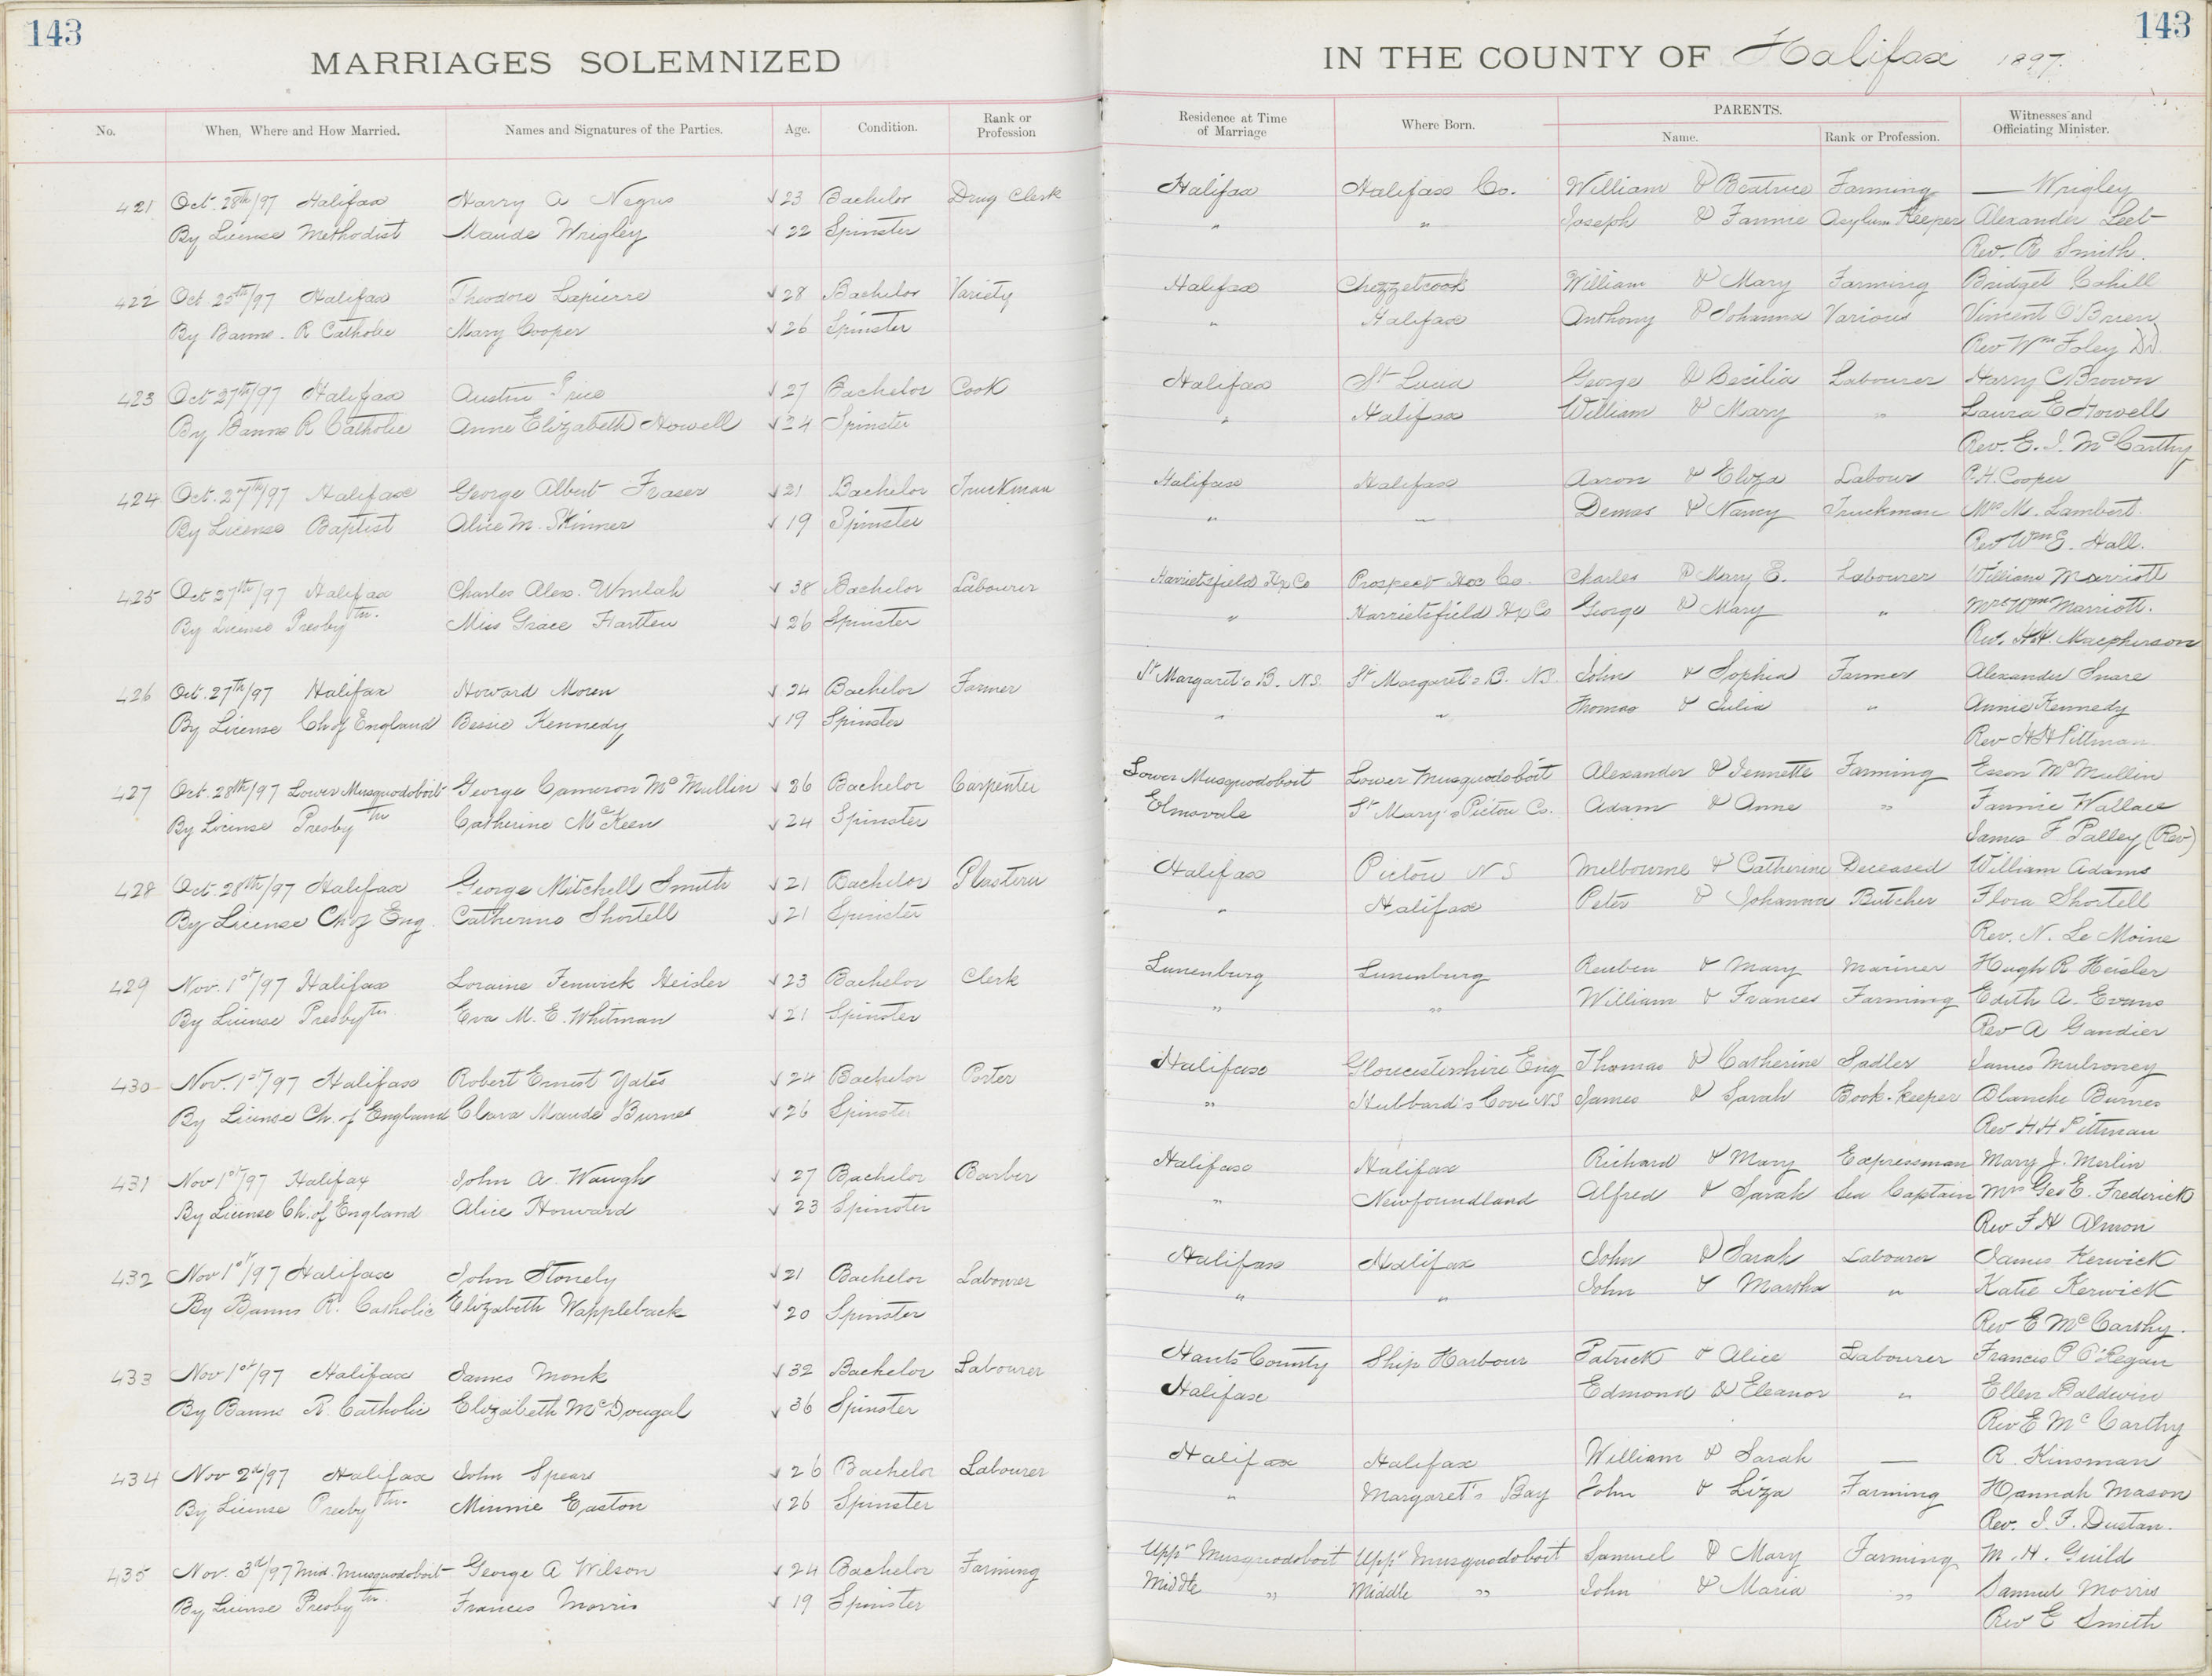 143
MARRIAGES SOLEMNIZED
No. When, Where and How Married. Names and Signatures of the Parties. Age. Condition. Rank or Profession
421 Oct. 28th/97 Halifax Harry A Negus √ 23 Bachelor Drug Clerk
By License Methodist Maude Wrigley √ 22 Spinster
422 Oct 25th/97 Halifax Theodore Lapierre √ 28 Bachelor Variety
By Banns. R Catholic Mary Cooper √ 26 Spinster
423 Oct 27th/97 Halifax Austin Price √ 27 Bachelor Cook
By Banns R Catholic Anne Elizabeth Howell √ 24 Spinster
424 Oct. 27th/97 Halifax George Albert Fraser √ 21 Bachelor Truckman
By License Baptist Alice M. Skinner √ 19 Spinster
425 Oct 27th/97 Halifax Charles Alex. Umlah √ 38 Bachelor Labourer
By License Presbytn. Miss Grace Hartlen √ 26 Spinster
426 Oct. 27th/97 Halifax Howard Moren √ 24 Bachelor Farmer
By License Ch of England Bessie Kennedy √ 19 Spinster
427 Oct. 28th/97 Lower Musquodoboit George Cameron McMullin √ 26 Bachelor Carpenter
By License Presbytn Catherine McKeen √ 24 Spinster
428 Oct. 28th/97 Halifax George Mitchell Smith √ 21 Bachelor Plasterer
By License Ch of Eng. Catherine Shortell √ 21 Spinster
429 Nov. 1st/97 Halifax Loraine Fenwick Heisler √ 23 Bachelor Clerk
By License Presbytn Eva M. E. Whitman √ 21 Spinster
430 Nov. 1st/97 Halifax Robert Ernest Yates √ 24 Bachelor Porter
By License Ch. of England Clara Maude Burnes √ 26 Spinster
431 Nov 1st/97 Halifax John A. Waugh √ 27 Bachelor Barber
By License Ch. of England Alice Howard √ 23 Spinster
432 Nov 1st/97 Halifax John Stonely √ 21 Bachelor Labourer
By Banns R. Catholic Elizabeth Wappleback √ 20 Spinster
433 Nov 1st/97 Halifax James Monk √ 32 Bachelor Labourer
By Banns R. Catholic Elizabeth McDougal √ 36 Spinster
434 Nov 2d/97 Halifax John Spears √ 26 Bachelor Labourer
By License Presbytn. Minnie Easton √ 26 Spinster
435 Nov. 3d/97 Mid. Musquodoboit George A Wilson √ 24 Bachelor Farming
By License Presbytn. Frances Morris √ 19 Spinster
143
IN THE COUNTY OF Halifax 1897.
Residence at Time of Marriage Where Born. PARENTS. Name. Rank or Profession. Witnesses and Officiating Minister.
Halifax Halifax Co. William & Beatrice Farming — Wrigley
" " Joseph & Fannie Asylum Keeper Alexander Leet
Rev. R Smith.
Halifax Chezzetcook William & Mary Farming Bridget Cahill
" Halifax Anthony & Johanna Various Vincent O'Brien
Rev Wm Foley DD.
Halifax St Lucia George & Cecilia Labourer Harry C Brown
" Halifax William & Mary " Laura E Howell
Rev. E. J. McCarthy
Halifax Halifax Aaron & Eliza Labour P. H. Cooper
" " Demas & Nancy Truckman Mrs M. Lambert.
Rev Wm E. Hall.
Harrietsfield Hx Co Prospect Hx Co. Charles & Mary E. Labourer William Marriott
" Harrietsfield Hx Co George & Mary " Mrs Wm Marriott.
Rev. H. H. Macpherson
St Margaret's B. N.S. St Margaret's B. N.S. John & Sophia Farmer Alexander Snare
" " Thomas & Julia " Annie Kennedy
Rev H H Pittman
Lower Musquodoboit Lower Musquodoboit Alexander & Jennette Farming Esson McMullin
Elmsvale St Mary's Pictou Co. Adam & Anne " Fannie Wallace
James F Palley (Rev)
Halifax Pictou N S Melbourne & Catherine Deceased William Adams
" Halifax Peter & Johanna Butcher Flora Shortell
Rev. N. Le Moine
Lunenburg Lunenburg Reuben & Mary Mariner Hugh R Heisler
" " William & Frances Farming Edith A. Evans
Rev A Gandier
Halifax Gloucestershire Eng Thomas & Catherine Sadler James Mulroney
" Hubbard's Cove N.S James & Sarah Book-keeper Blanche Burnes
Rev H H Pittman
Halifax Halifax Richard & Mary Expressman Mary J. Merlin
" Newfoundland Alfred & Sarah Sea Captain Mrs Geo E. Frederick
Rev F H Almon
Halifax Halifax John & Sarah Labourer James Kerwick
" " John & Martha " Katie Kerwick
Rev E McCarthy.
Hants County Ship Harbour Patrick & Alice Labourer Francis P O'Regan
Halifax Edmond & Eleanor " Ellen Baldwin
Rev E McCarthy
Halifax Halifax William & Sarah — R. Kinsman
" Margaret's Bay John & Liza Farming Hannah Mason
Rev. J. F. Dustan.
Uppr Musquodoboit Uppr Musquodoboit Samuel & Mary Farming M. H. Guild
Middle " Middle " John & Maria " Samuel Morris
Rev E Smith